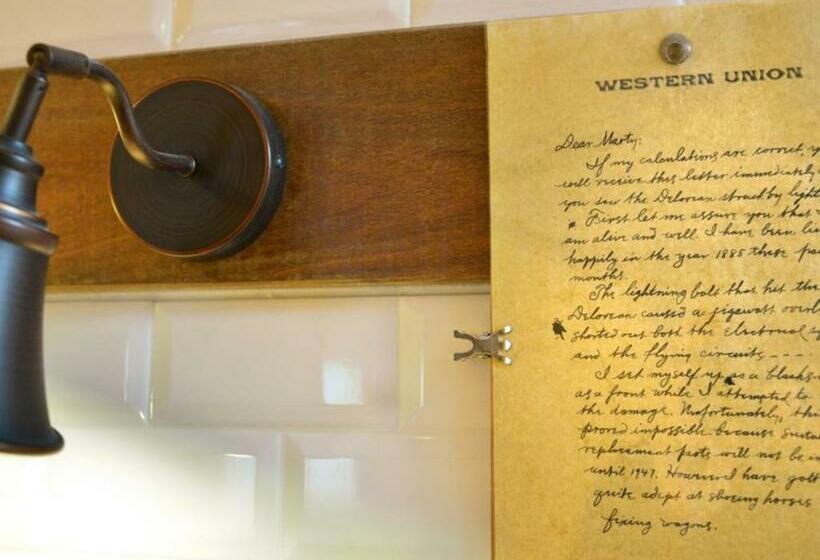 WESTERN UNION
Dear Marty:
If my calculations are correct, y
will receive this letter immediately
you saw the Delorean struck by light
First let me assure you that
am alive and well. I have been liv
happily in the year 1885 these pas
months.
The lightning bolt that hit the
Delorean caused a jigawatt overl
shorted out both the electrical sy
and the flying circuits ----
I set myself up as a blacks
as a front while I attempted to
the damage. Unfortunately, this
proved impossible because suita
replacement parts will not be in
until 1947. However I have gott
quite adept at shoeing horses
fixing wagons.